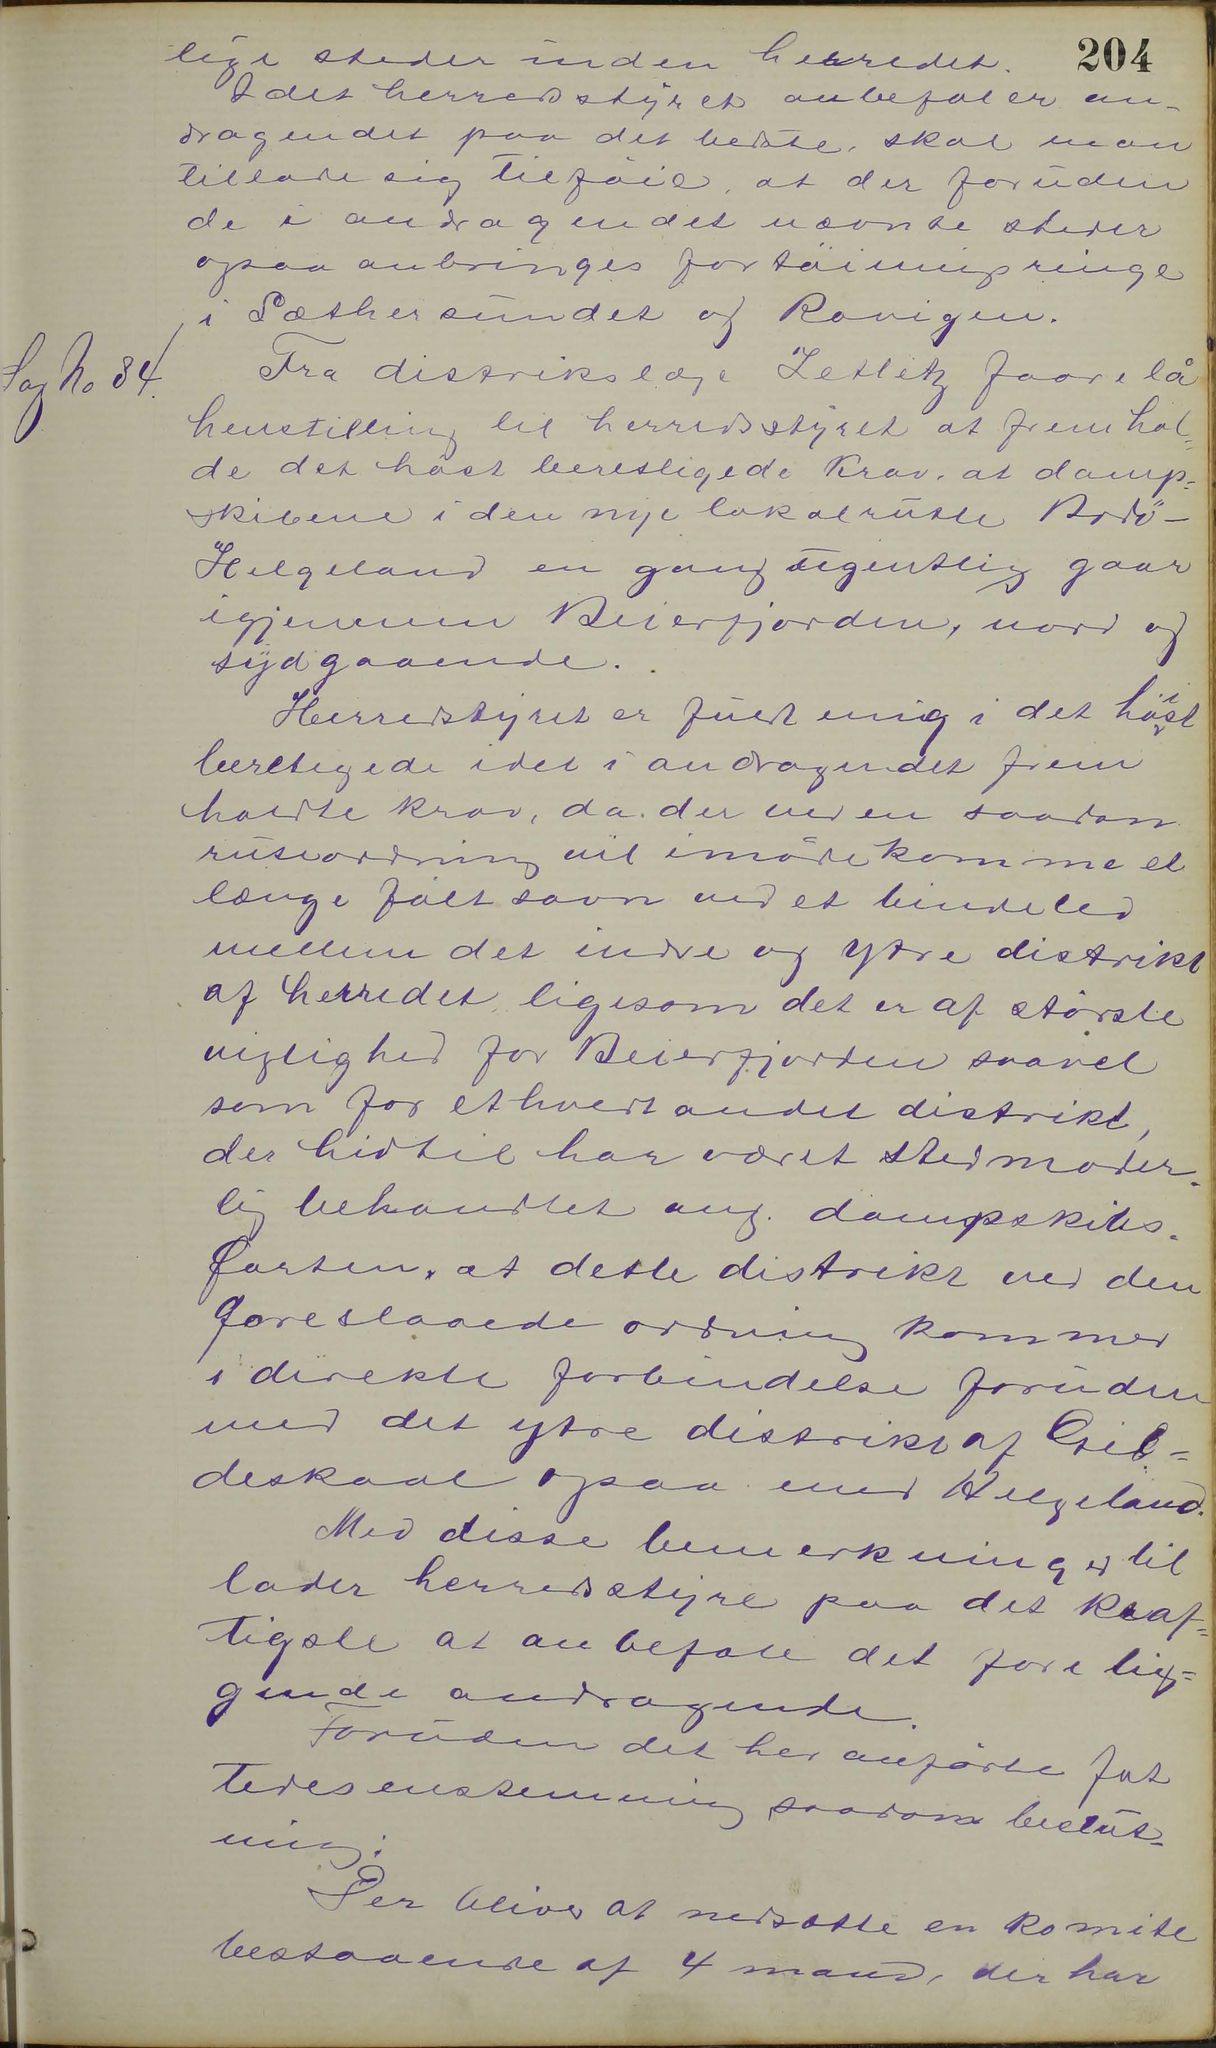 204
lige steder inden herredet.
Idet herredsstyret anbefaler an-
dragendet paa det bedste, skal man
tillade sig tilföie, at der foruden
de i andragendet nævnte steder
ogsaa anbringes fortöiningsringe
i Sæthersundet og Ravigen.
Sag No 84.
Fra distrikslæge Zetlitz forelå
henstilling til herredsstyret at fremhol-
de det höist beretligede Krav, at damp-
skibene i den nye lokalrute Bodö-
Helgeland en gang ugentlig gaar
igjennem Beierfjorden, nord og
sydgaaende.
Herredstyret er fuldt enig i det höist
berettigede idet i andragendet frem
holdte krav, da der ved en saadan
ruteordning vil imödekomme et
længe fölt savn ved et bindeled
mellem det indre og ytre distrikt
af herredet, ligesom det er af störste
vigtighed for Beierfjorden saavel
som for ethvert andet distrikt,
der hidtil har været stedmoder-
lig behandlet ang. dampskibs-
farten, at dette distrikt ved den
foreslaaede ordning kommer
i direkte forbindelse foruden
med det ytre distrikt af Gil-
deskaal ogsaa med Helgeland.
Med disse bemerkninger til
lader herredsstyre paa det kraf-
tigste at anbefale det forelig-
gende andragende.
Foruden det her anförte fat
tedes enstemmig saadan beslut-
ning:
Der bliver at nedsætte en komite
bestaaende af 4 mand, der har